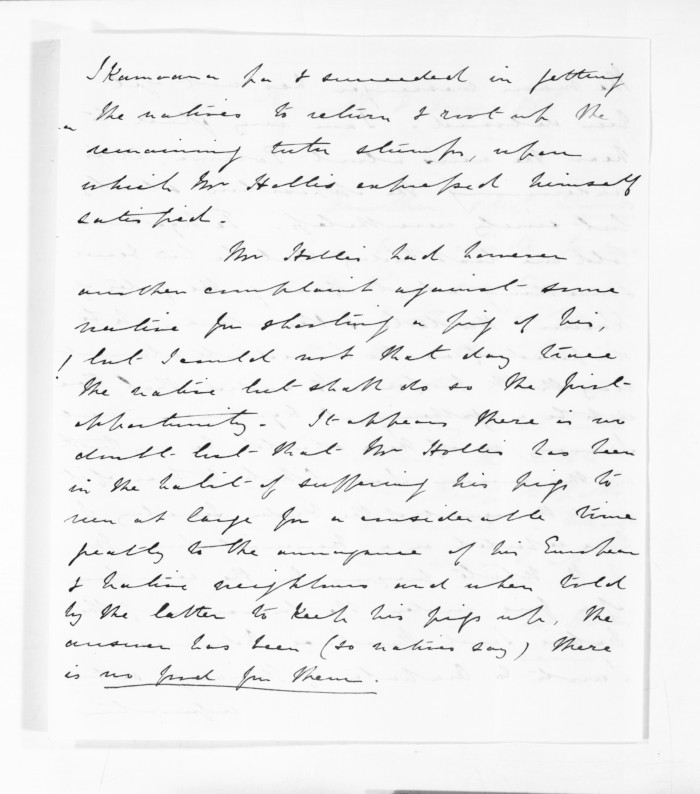 & succeeded in getting
the natives to return & root up the
remaining tutu stumps, upon
which Mr Hollis expressed himself
satisfied.
Mr Hollis had however
another complaint against some
native for shooting a pig of his,
but I could not that day trace
the native but shall do so the first
opportunity. It appears there is no
doubt but that Mr Hollis has been
in the habit of suffering his pigs to
run at large for a considerable time
greatly to the annoyance of his European
& native neighbours and when told
by the latter to keep his pigs up, the
answer has been (so natives say) there
is no food for them.